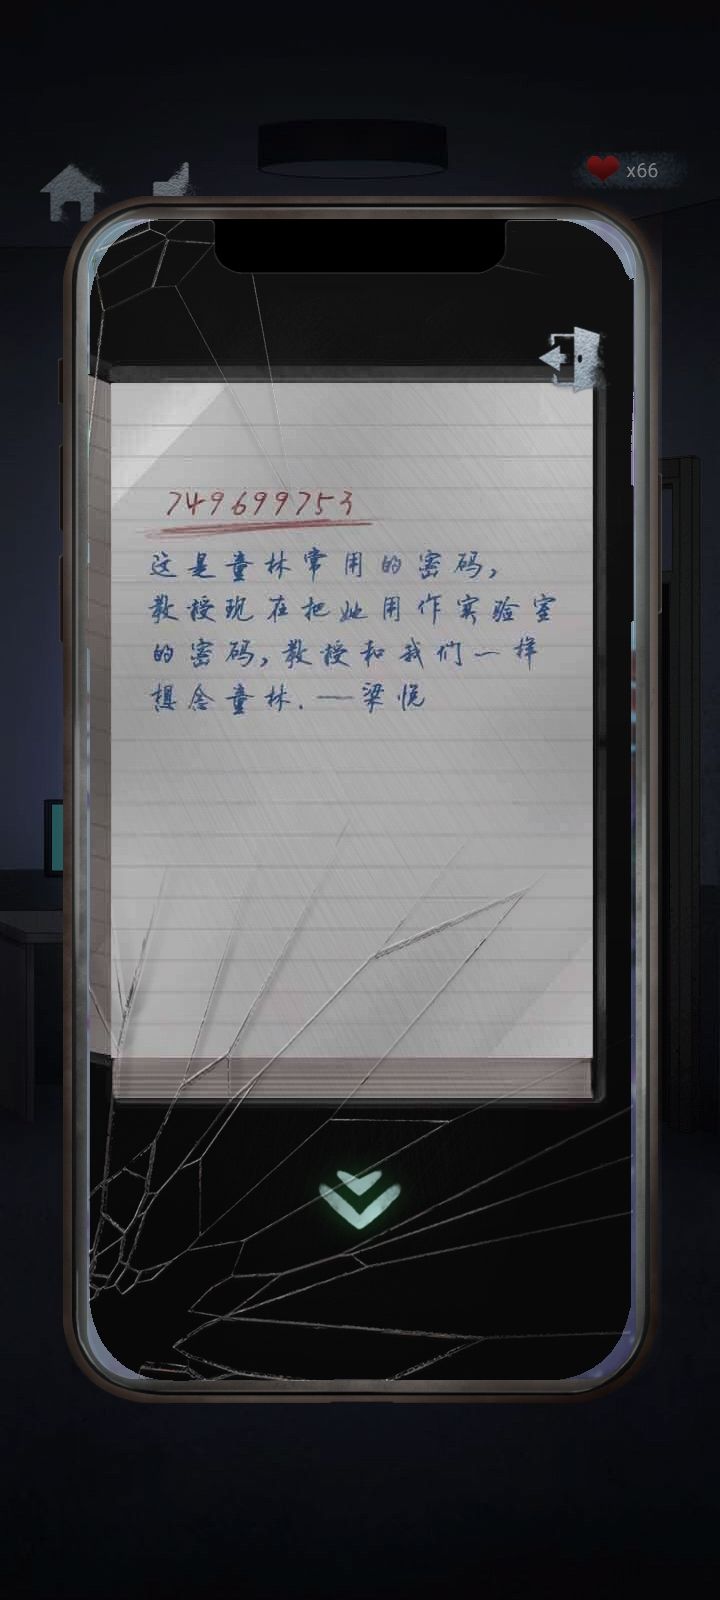 x66
749699753
这是童林常用的密码,
教授现在把她用作实验室
的密码,教授和我们一样
想念童林.——梁悦